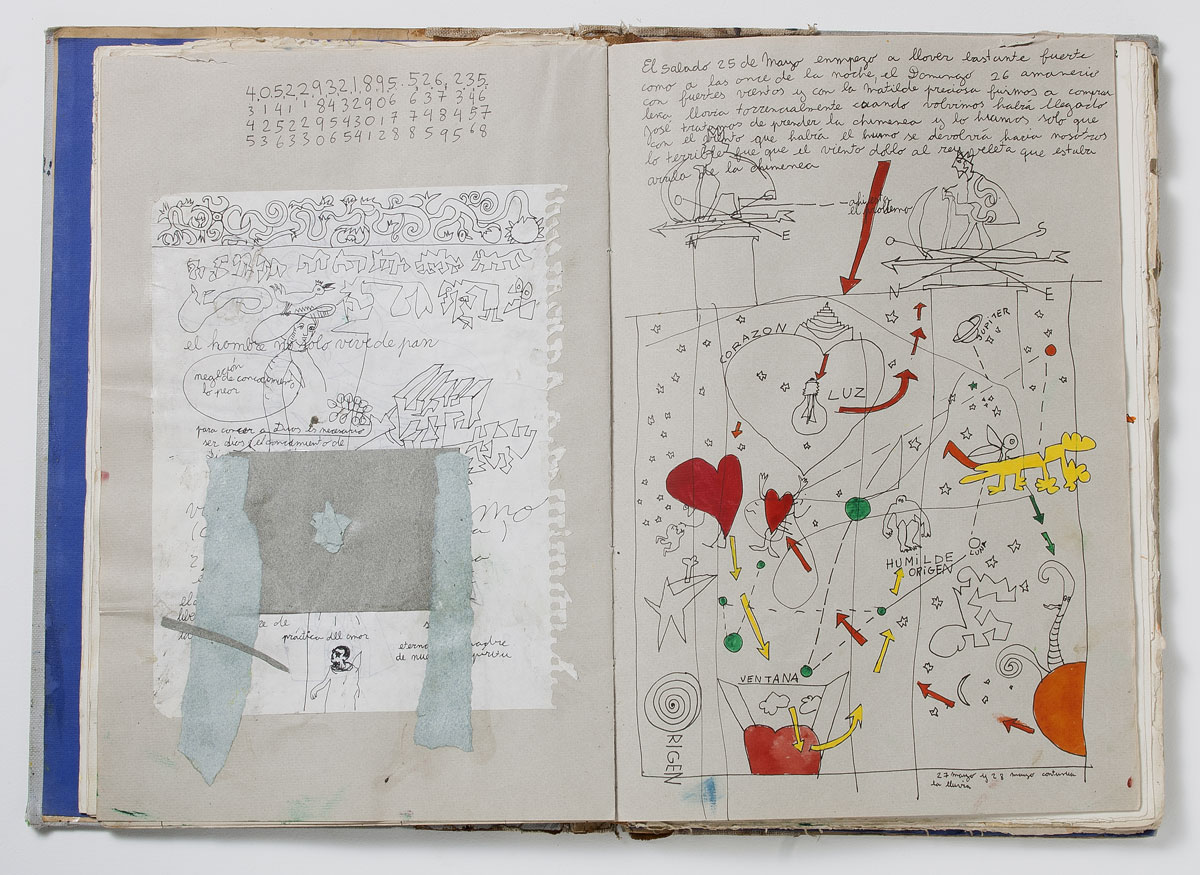 4.0.5.2.2.9.3.2.1.8.9.5.5.2.6.2.3.5.
3 1 4 1 1 8 4 3 2 9 0 6 6 3 7 3 4 6
4 2 5 2 2 9 5 4 3 0 1 7 7 4 8 4 5 7
5 3 6 3 3 0 6 5 4 1 2 8 8 5 9 5 6 8
el hombre no solo vive de pan
negación
de conocimiento
lo peor
para conocer a Dios es necesario
ser dios el conocimiento de
de
práctica del amor
eterno
de
El Sabado 25 de Marzo enmpezo a llover bastante fuerte
como a las once de la noche, el Domingo 26 amanerio
con fuertes vientos y con la Matilde preciosa fuimos a comprar
leña lluvia torrencialmente cuando volvimos habia llegado
José tratamos de prender la chimenea y lo hicimos solo que
con el viento que habia el humo se devolvia hacia nosotros
lo terrible fue que el viento doblo al rey veleta que estaba
arriba de la chimenea
N
E
O
S
N
E
CORAZON
LUZ
JUPITER
LUNA
HUMILDE
ORIGEN
VENTANA
ORIGEN
27 marzo y 28 marzo continua
la lluvia